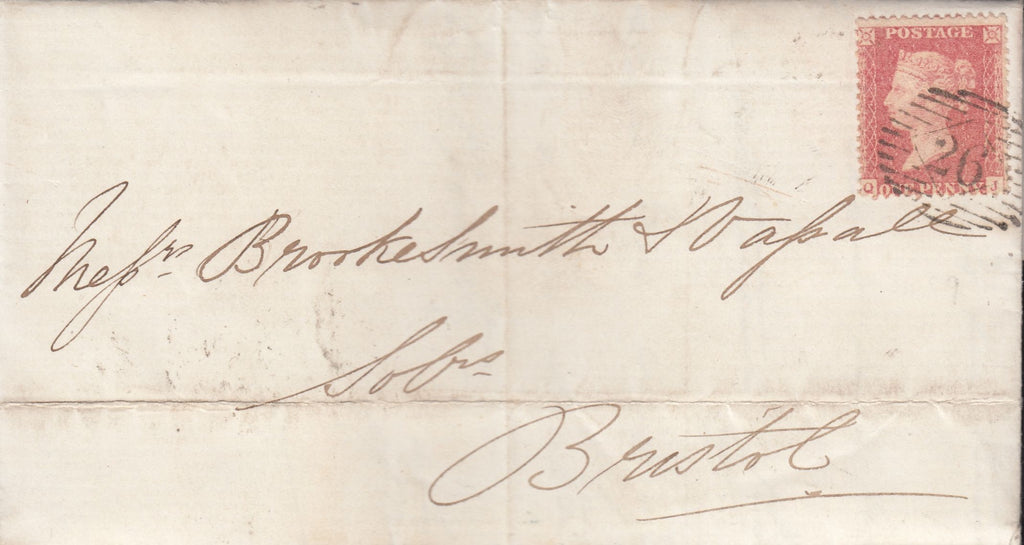 POSTAGE
26
Q ONE PENNY J
Messrs Brookesmith & Vassall
Solrs
Bristol